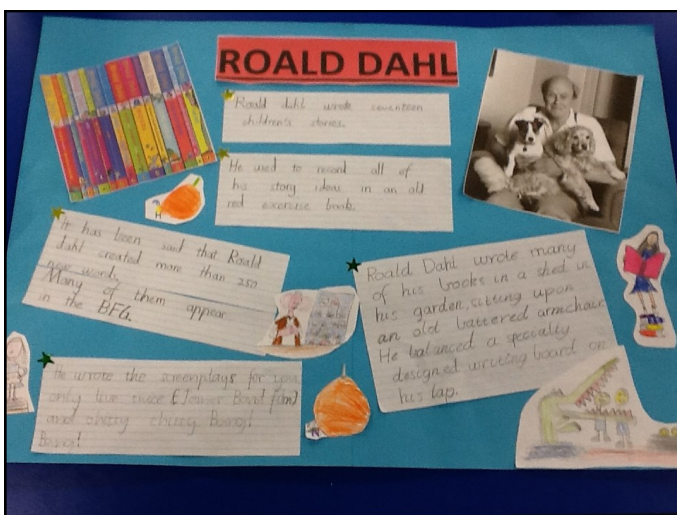 ROALD DAHL
Roald dahl wrote seventeen
children's stories.
He used to record all of
his story ideas in an old
red exercise book.
It has been said that Roald
dahl created more than 250
new words
Many of them appear
in the BFG.
Roald Dahl wrote many
of his books in a shed in
his garden, sitting upon
an old battered armchair
He balanced a specially
designed writing board on
his lap.
He wrote the screenplays for you
only live twice (James Bond film)
and chitty chitty Bang!
Bang!